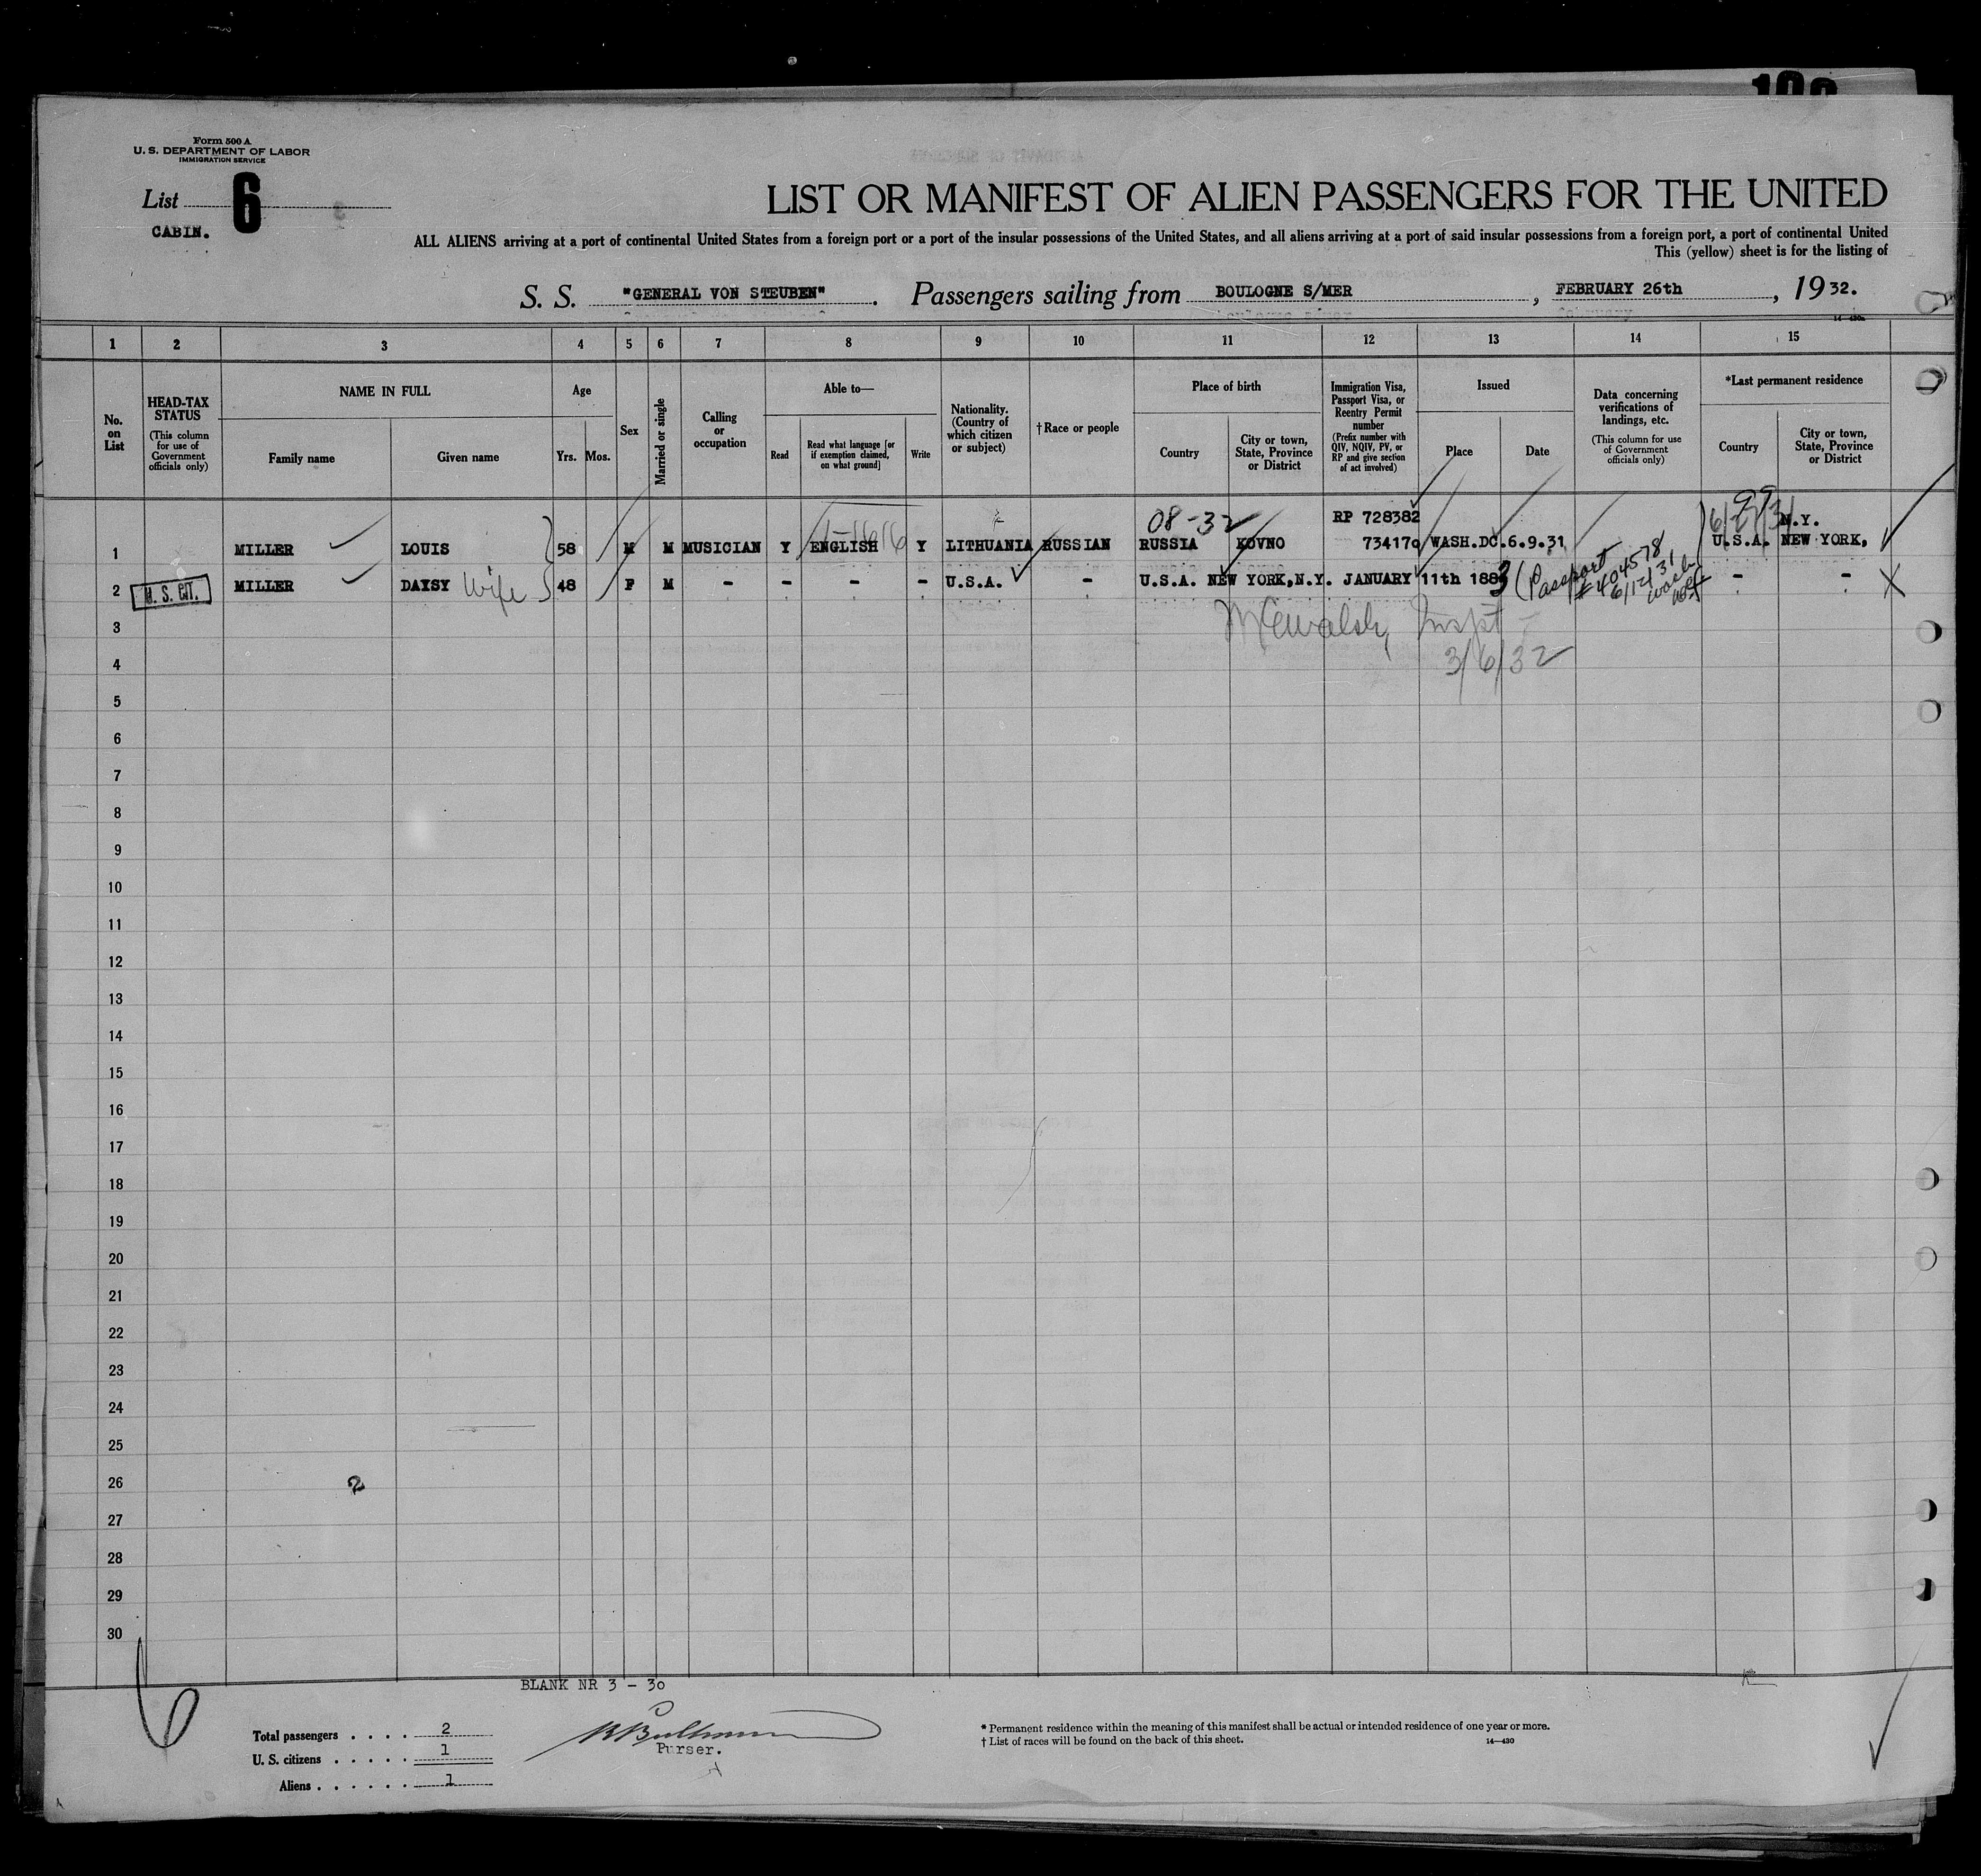 Form 500 A
U. S. DEPARTMENT OF LABOR
IMMIGRATION SERVICE
List 6
CABIN.
LIST OR MANIFEST OF ALIEN PASSENGERS FOR THE UNITED
ALL ALIENS arriving at a port of continental United States from a foreign port or a port of the insular possessions of the United States, and all aliens arriving at a port of said insular possessions from a foreign port, a port of continental United
This (yellow) sheet is for the listing of
S. S. "GENERAL VON STEUBEN". Passengers sailing from BOULOGNE S/MER, FEBRUARY 26th, 1932.
1 2 3 4 5 6 7 8 9 10 11 12 13 14 15
No. on List
HEAD-TAX STATUS
(This column for use of Government officials only)
NAME IN FULL
Family name Given name
Age
Yrs. Mos.
Sex
Married or single
Calling or occupation
Able to—
Read Read what language [or if exemption claimed, on what ground] Write
Nationality. (Country of which citizen or subject)
†Race or people
Place of birth
Country City or town, State, Province or District
Immigration Visa, Passport Visa, or Reentry Permit number
(Prefix number with QIV, NQIV, PV, or RP and give section of act involved)
Issued
Place Date
Data concerning verifications of landings, etc.
(This column for use of Government officials only)
*Last permanent residence
Country City or town, State, Province or District
08-32 RP 728382 N.Y.
1 MILLER LOUIS 58 M M MUSICIAN Y ENGLISH Y LITHUANIA RUSSIAN RUSSIA KOVNO 73417 WASH.DC.6.9.31 U.S.A. NEW YORK,
2 U.S. CIT. MILLER DAISY wife 48 F M - - - - U.S.A. - U.S.A. NEW YORK,N.Y. JANUARY 11th 1883 (Passport #404578 6/12/31 Wash - -
3 McWalsh, Inspt
4 3/6/32
5
6
7
8
9
10
11
12
13
14
15
16
17
18
19
20
21
22
23
24
25
26 2
27
28
29
30
BLANK NR 3 - 30
6
Total passengers . . . . 2
U. S. citizens . . . . . 1
Aliens . . . . . . 1
Purser.
* Permanent residence within the meaning of this manifest shall be actual or intended residence of one year or more.
† List of races will be found on the back of this sheet. 14—430